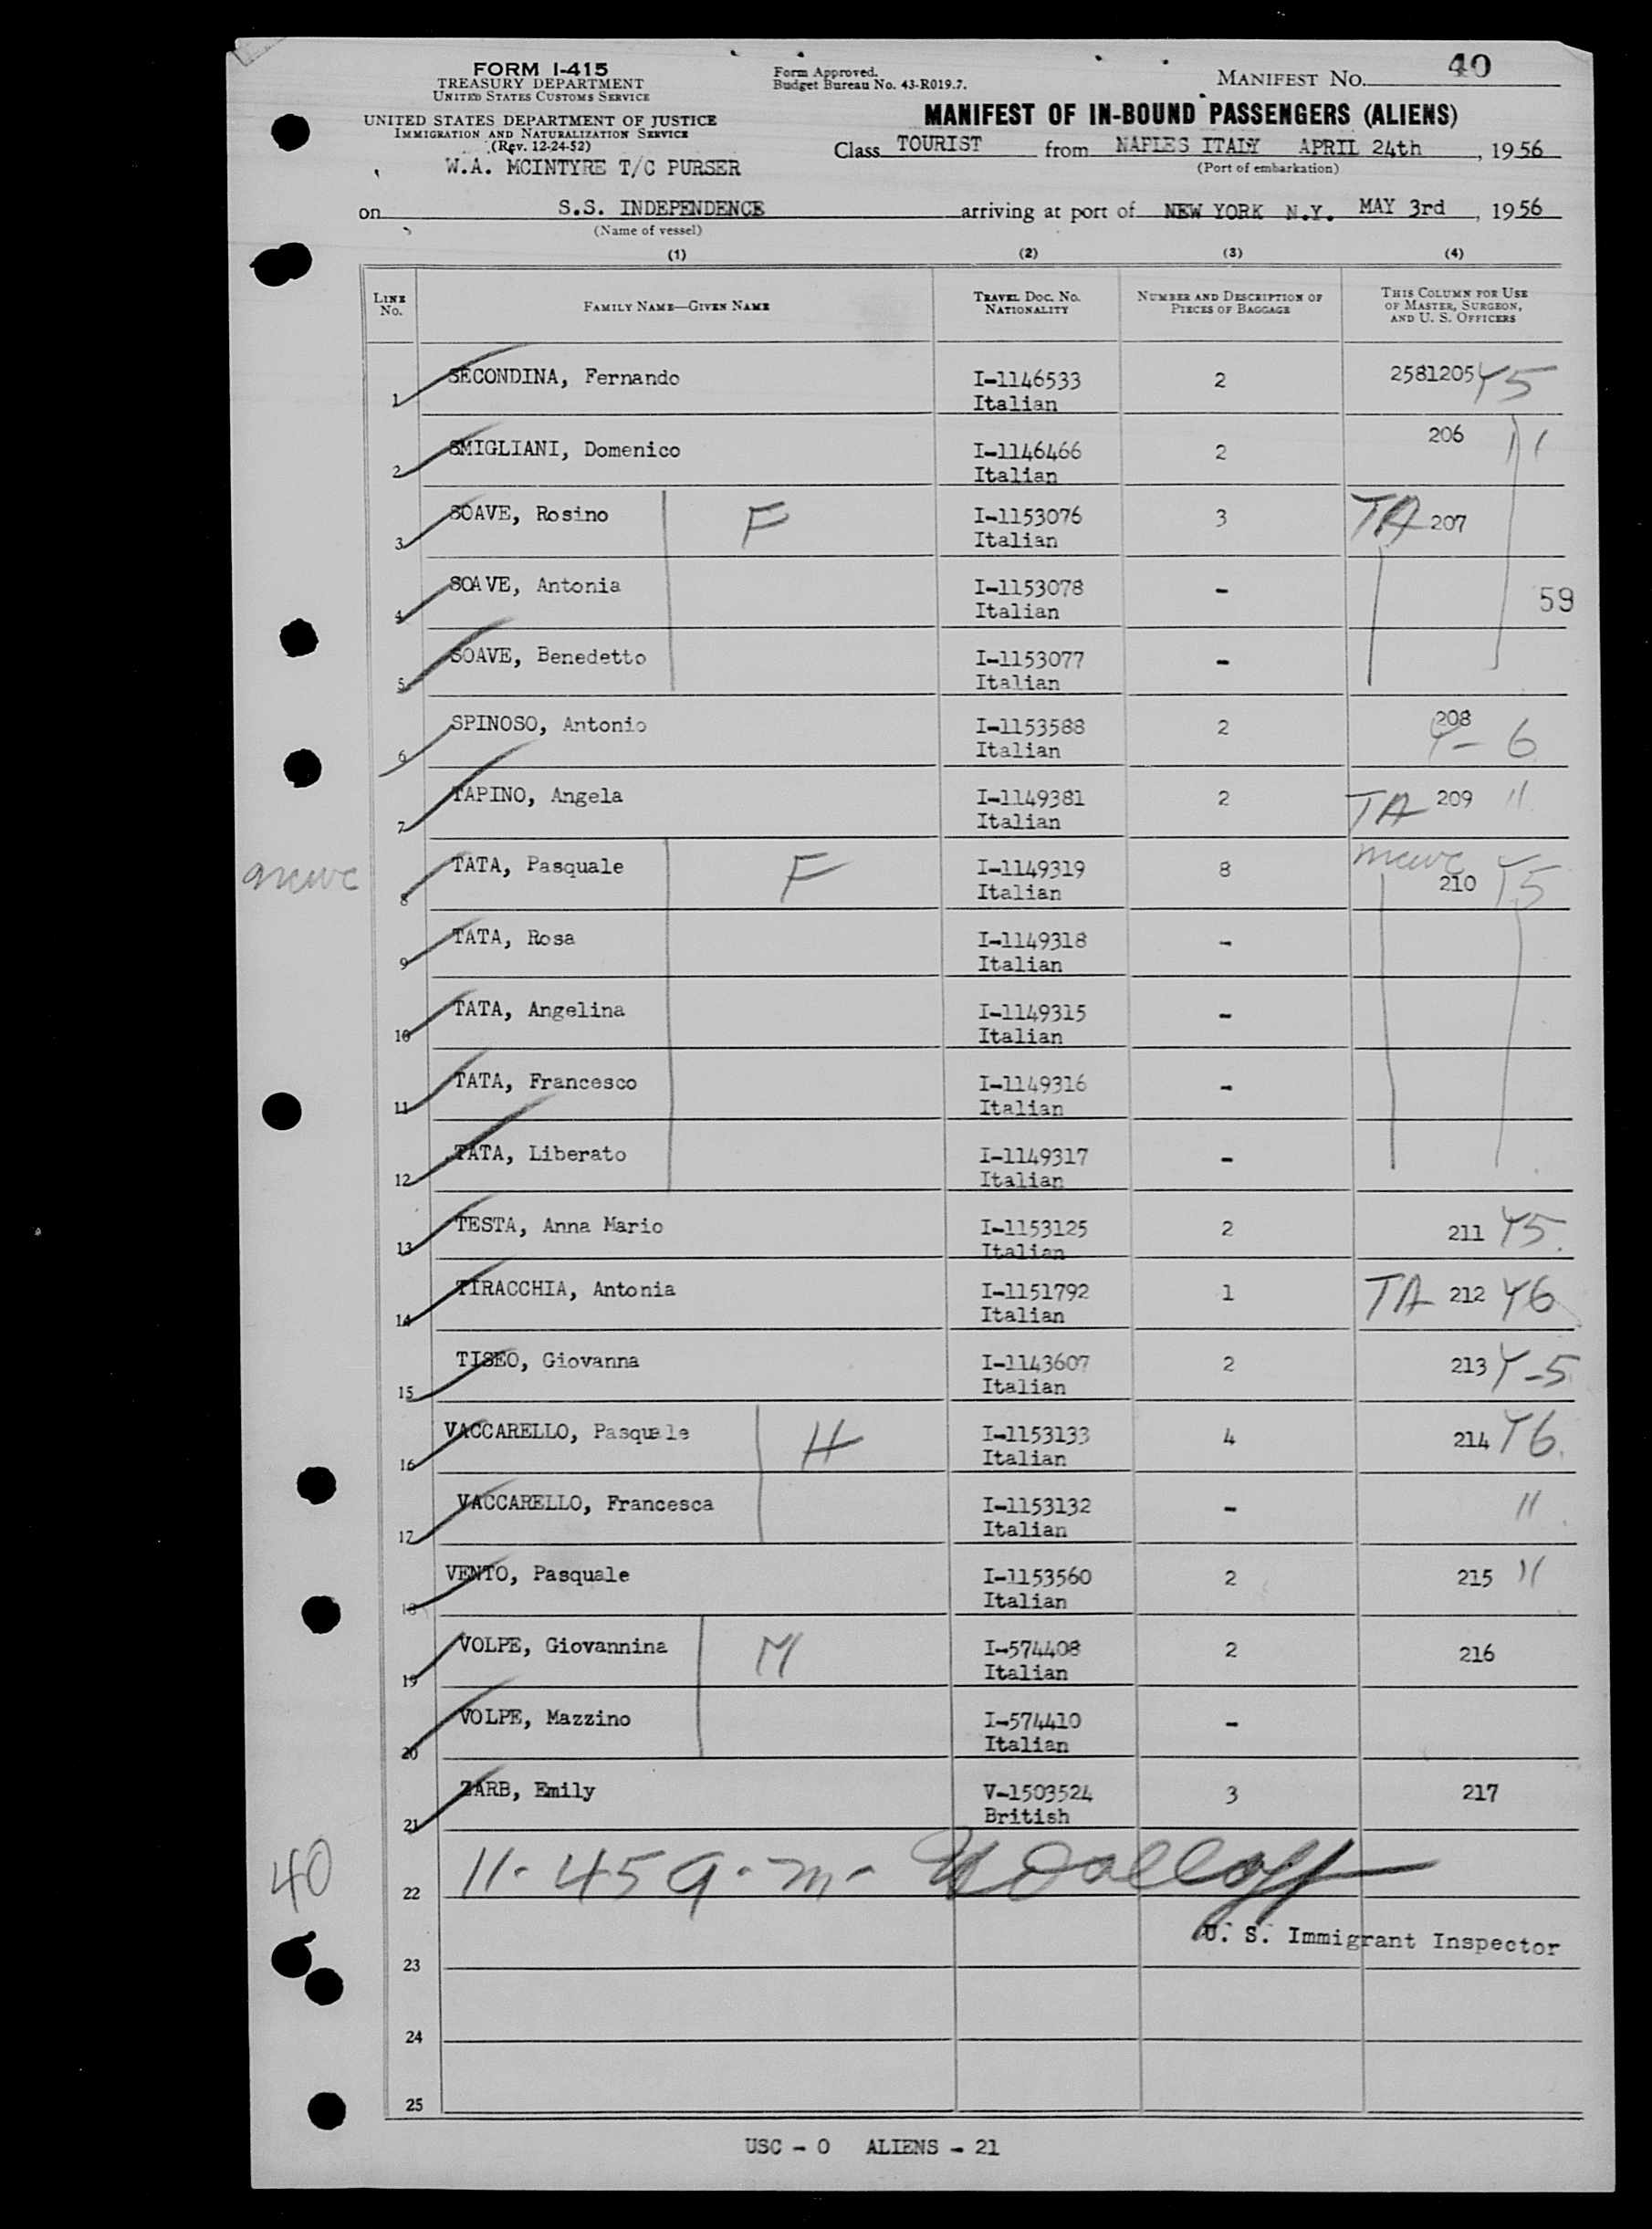 FORM I-415
TREASURY DEPARTMENT
UNITED STATES CUSTOMS SERVICE
UNITED STATES DEPARTMENT OF JUSTICE
IMMIGRATION AND NATURALIZATION SERVICE
(Rev. 12-24-52)
W.A. MCINTYRE T/C PURSER
Form Approved.
Budget Bureau No. 43-R019.7.
MANIFEST NO. 40
MANIFEST OF IN-BOUND PASSENGERS (ALIENS)
Class TOURIST from NAPLES ITALY APRIL 24th, 1956
(Port of embarkation)
on S.S. INDEPENDENCE arriving at port of NEW YORK N.Y. MAY 3rd, 1956
(Name of vessel)
(1) (2) (3) (4)
LINE No. FAMILY NAME—GIVEN NAME TRAVEL DOC. NO. NATIONALITY NUMBER AND DESCRIPTION OF PIECES OF BAGGAGE THIS COLUMN FOR USE OF MASTER, SURGEON, AND U. S. OFFICERS
1 SECONDINA, Fernando I-1146533 2 2581205 Y5
Italian
2 SMIGLIANI, Domenico I-1146466 2 206 11
Italian
3 SOAVE, Rosino F I-1153076 3 TA 207
Italian
4 SOAVE, Antonia I-1153078 - 59
Italian
5 SOAVE, Benedetto I-1153077 -
Italian
6 SPINOSO, Antonio I-1153588 2 208 Y-6
Italian
7 TAPINO, Angela I-1149381 2 TA 209 11
Italian
8 TATA, Pasquale F I-1149319 8 210 Y5
Italian
9 TATA, Rosa I-1149318 -
Italian
10 TATA, Angelina I-1149315 -
Italian
11 TATA, Francesco I-1149316 -
Italian
12 TATA, Liberato I-1149317 -
Italian
13 TESTA, Anna Mario I-1153125 2 211 Y5
Italian
14 TIRACCHIA, Antonia I-1151792 1 TA 212 Y6
Italian
15 TISEO, Giovanna I-1143607 2 213 Y-5
Italian
16 VACCARELLO, Pasquale H I-1153133 4 214 Y6
Italian
17 VACCARELLO, Francesca I-1153132 - 11
Italian
18 VENTO, Pasquale I-1153560 2 215 11
Italian
19 VOLPE, Giovannina M I-574408 2 216
Italian
20 VOLPE, Mazzino I-574410 -
Italian
21 ZARB, Emily V-1503524 3 217
British
40
22 11-45 a.m.
U. S. Immigrant Inspector
23
24
25
USC - 0 ALIENS - 21